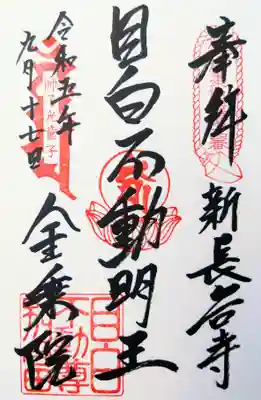 奉拜
新長谷寺
目白不動明王
令和五年
九月十七日
金乗院